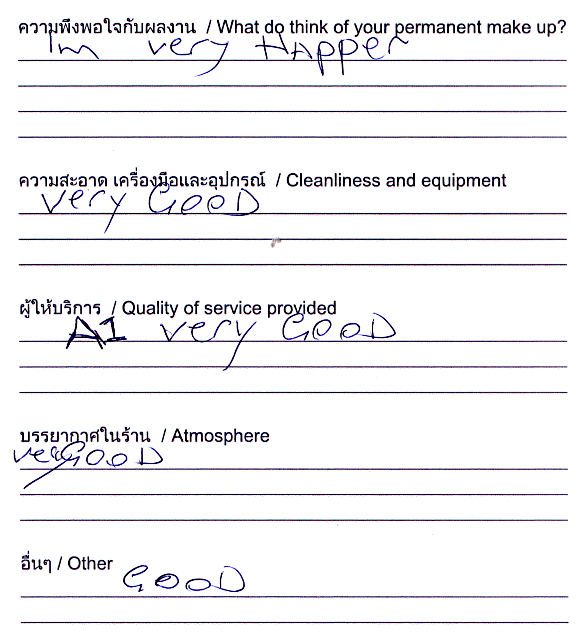 ความพึงพอใจกับผลงาน / What do think of your permanent make up?
Im very HApper
ความสะอาด เครื่องมือและอุปกรณ์ / Cleanliness and equipment
very GOOD
ผู้ให้บริการ / Quality of service provided
A1 very GOOD
บรรยากาศในร้าน / Atmosphere
very GOOD
อื่นๆ / Other
GOOD